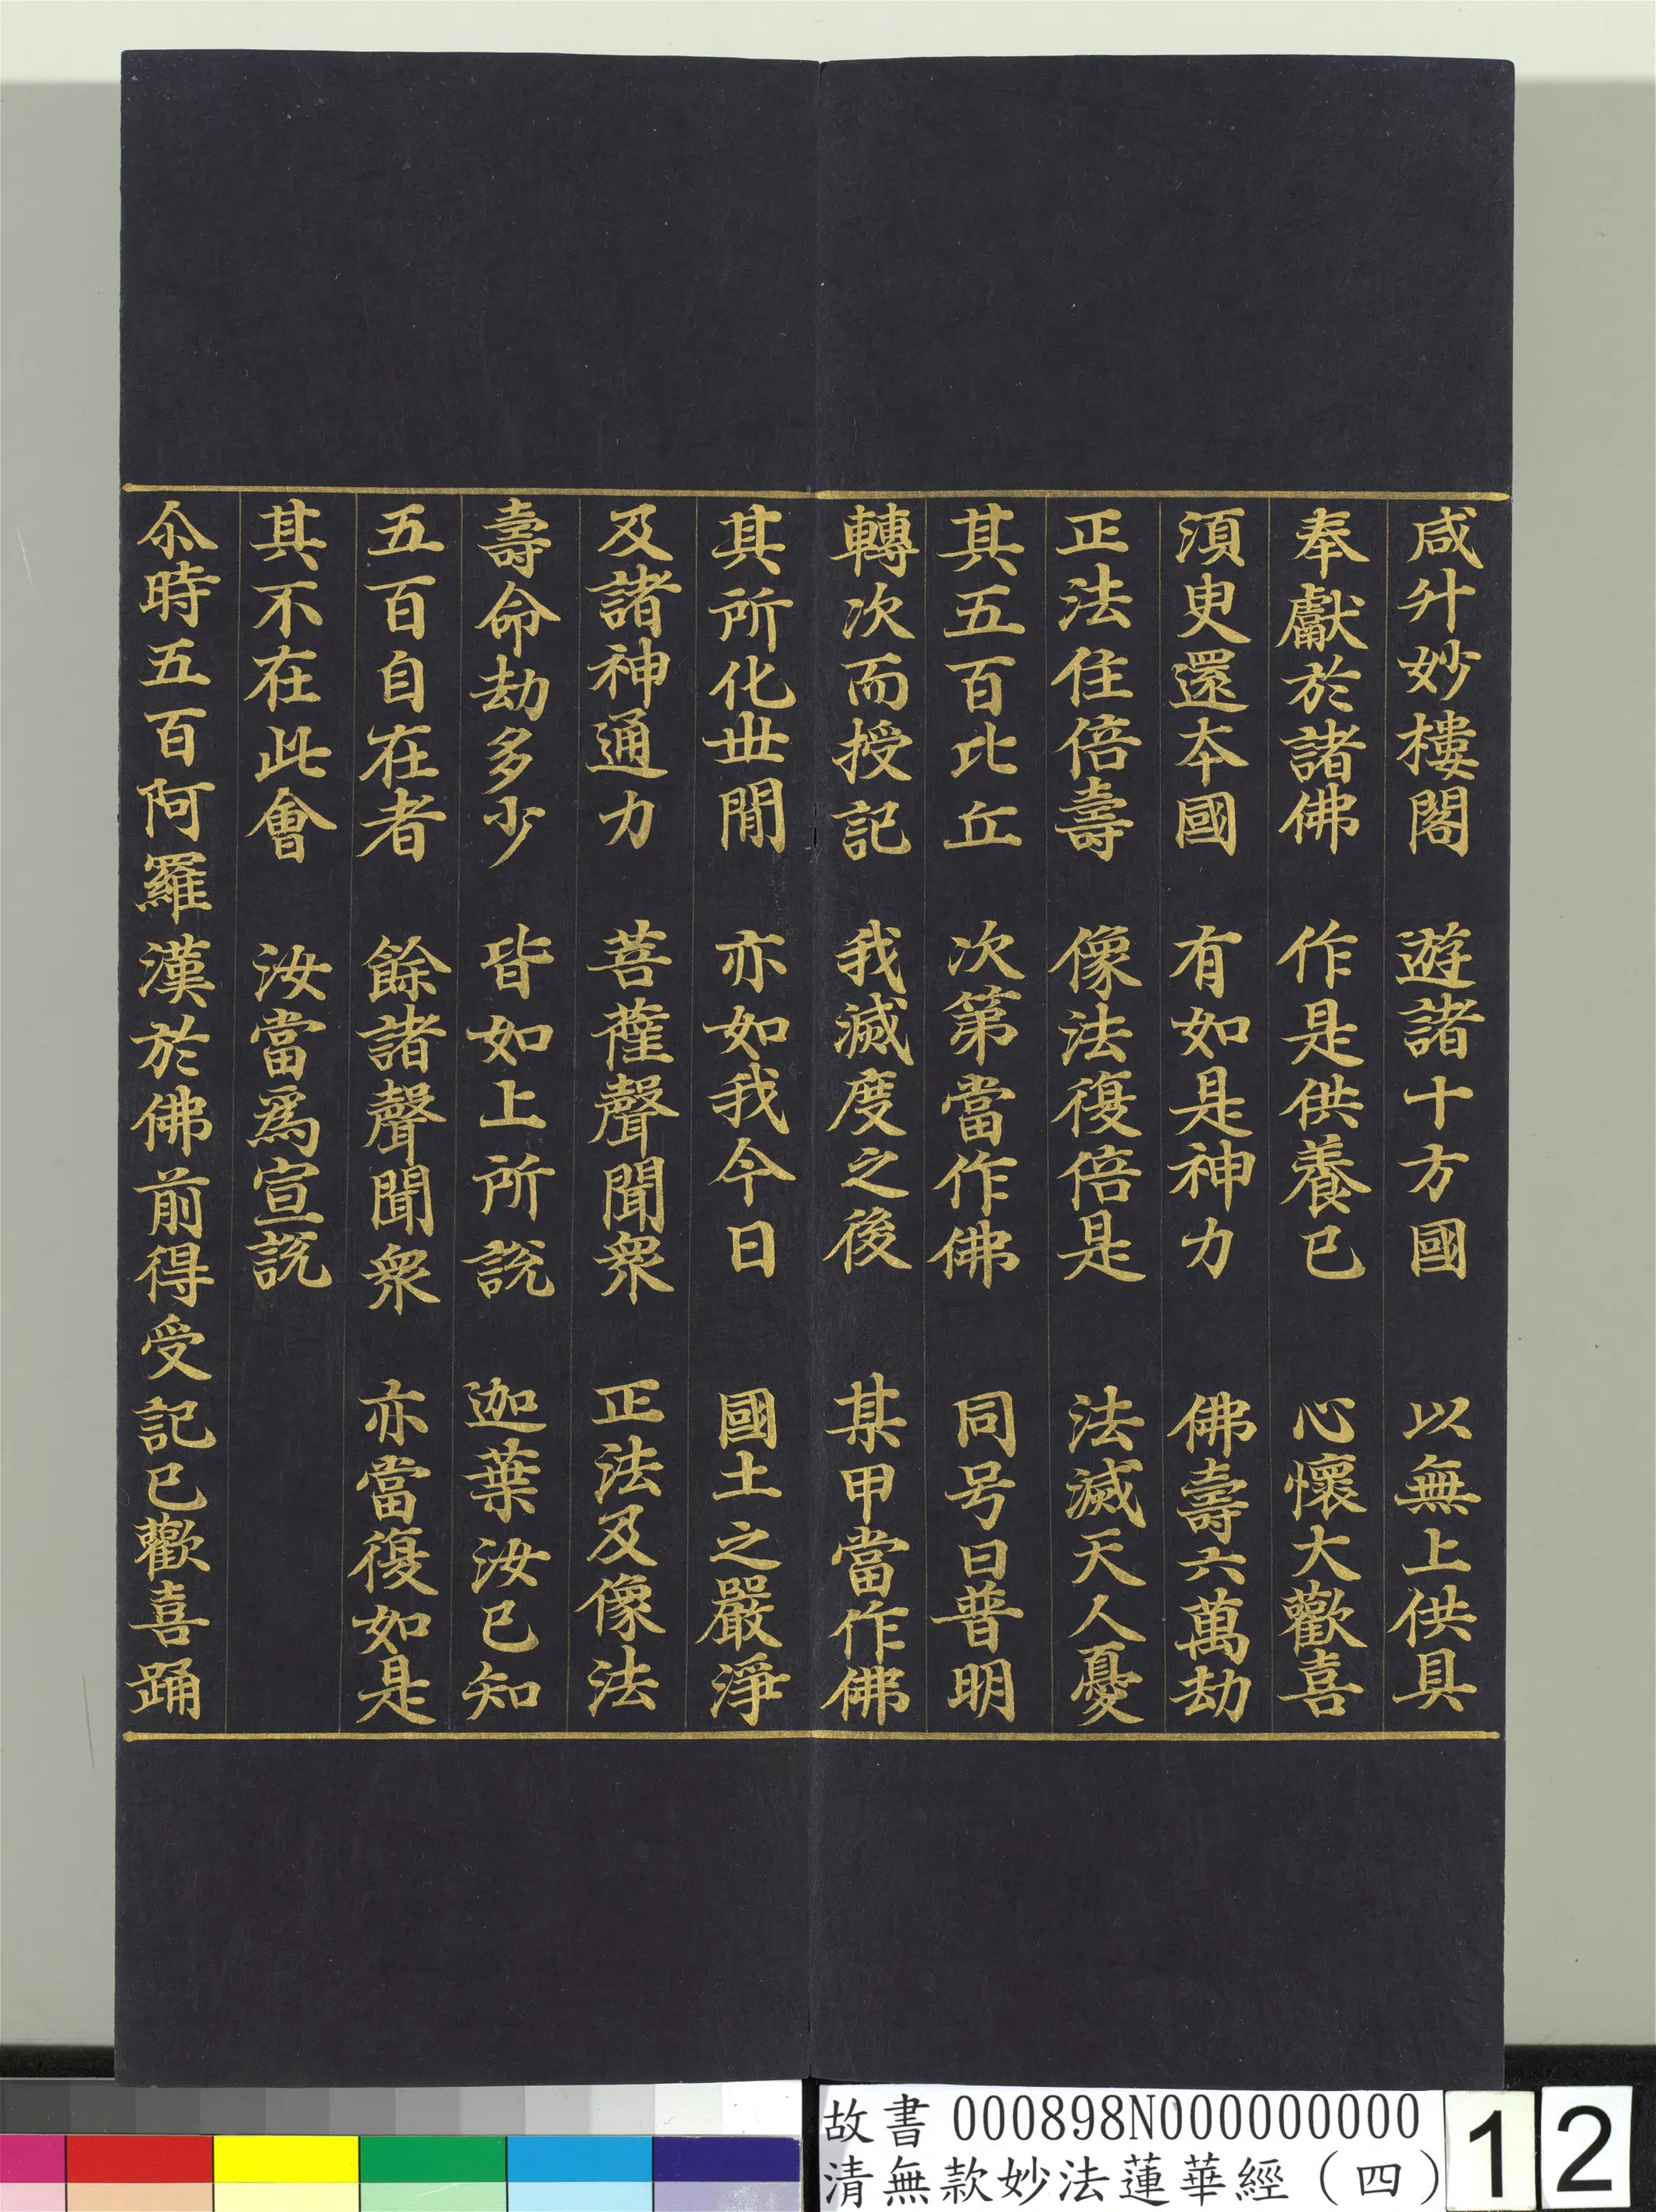 咸升妙樓閣　遊諸十方國　以無上供具
奉獻於諸佛　作是供養已　心懷大歡喜
須臾還本國　有如是神力　佛壽六萬劫
正法住倍壽　像法復倍是　法滅天人憂
其五百比丘　次第當作佛　同号曰普明
轉次而授記　我滅度之後　某甲當作佛
其所化世間　亦如我今日　國土之嚴淨
及諸神通力　菩薩聲聞眾　正法及像法
壽命劫多少　皆如上所說　迦葉汝已知
五百自在者　餘諸聲聞眾　亦當復如是
其不在此會　汝當為宣說
尒時五百阿羅漢於佛前得受記已歡喜踊
故書 000898N000000000
清無款妙法蓮華經（四）
12